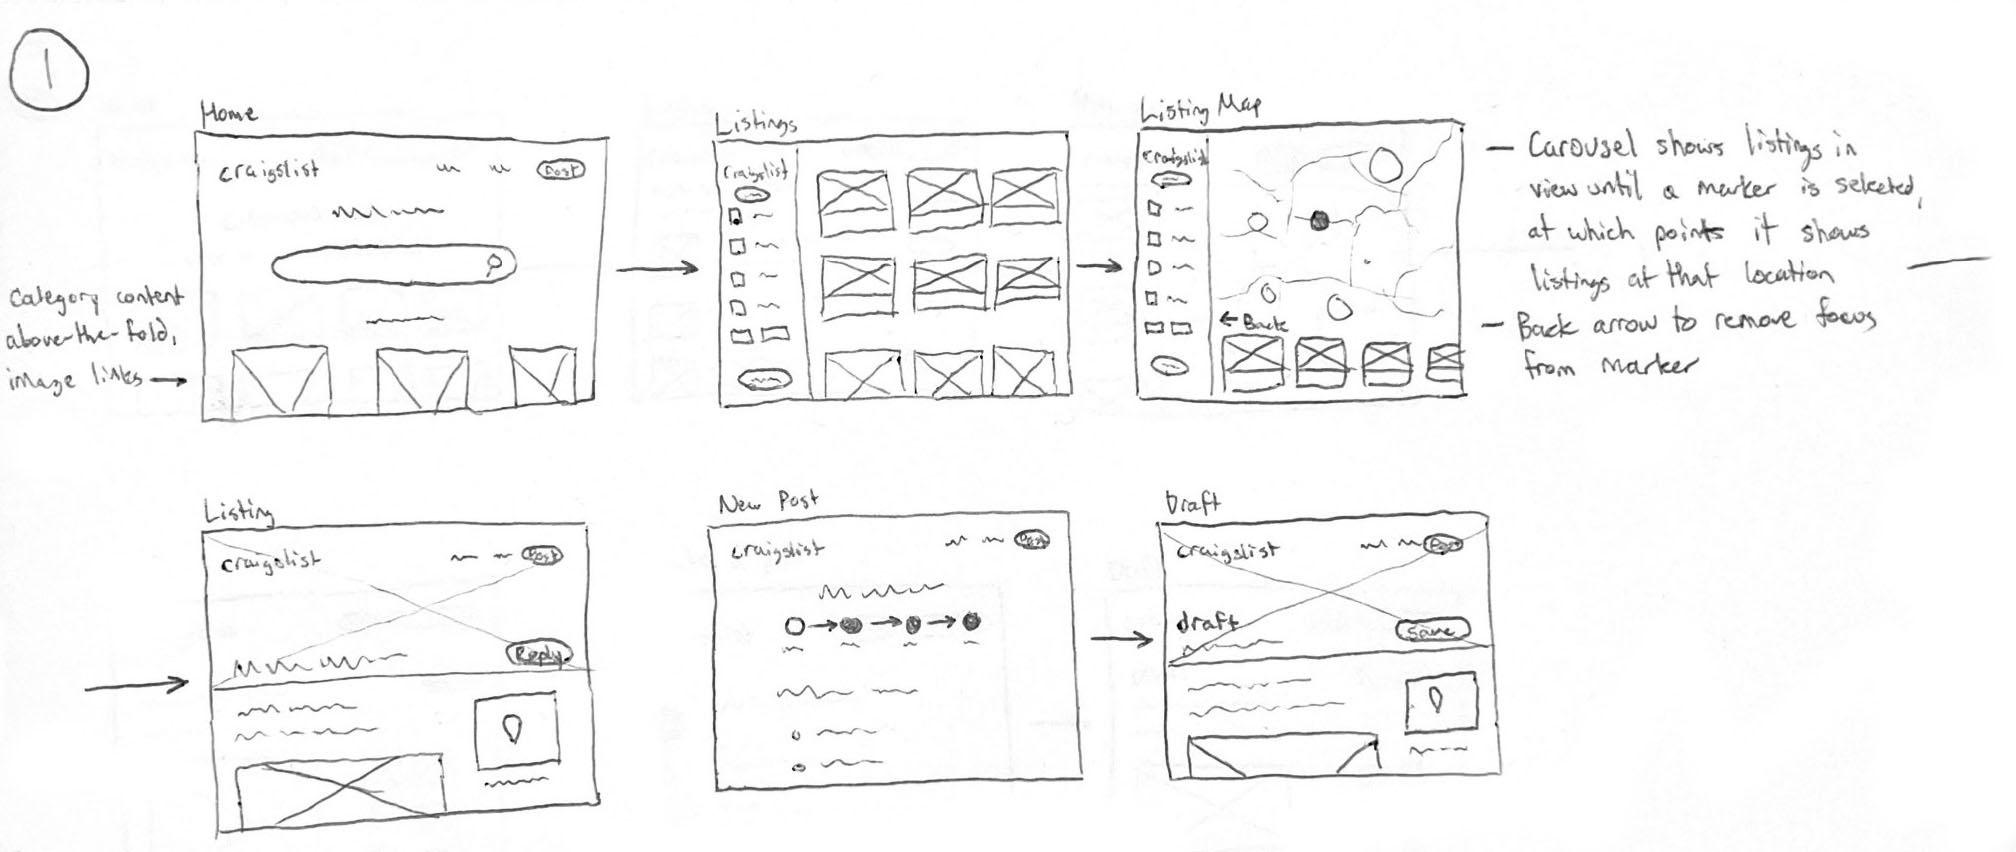 1
Home
craigslist
Post
Category content
above-the-fold,
image links
Listings
craigslist
Listing Map
craigslist
← Back
– Carousel shows listings in
view until a marker is selected,
at which points it shows
listings at that location
– Back arrow to remove focus
from marker
Listing
craigslist
Post
Reply
New Post
craigslist
Post
Draft
craigslist
Post
draft
Save